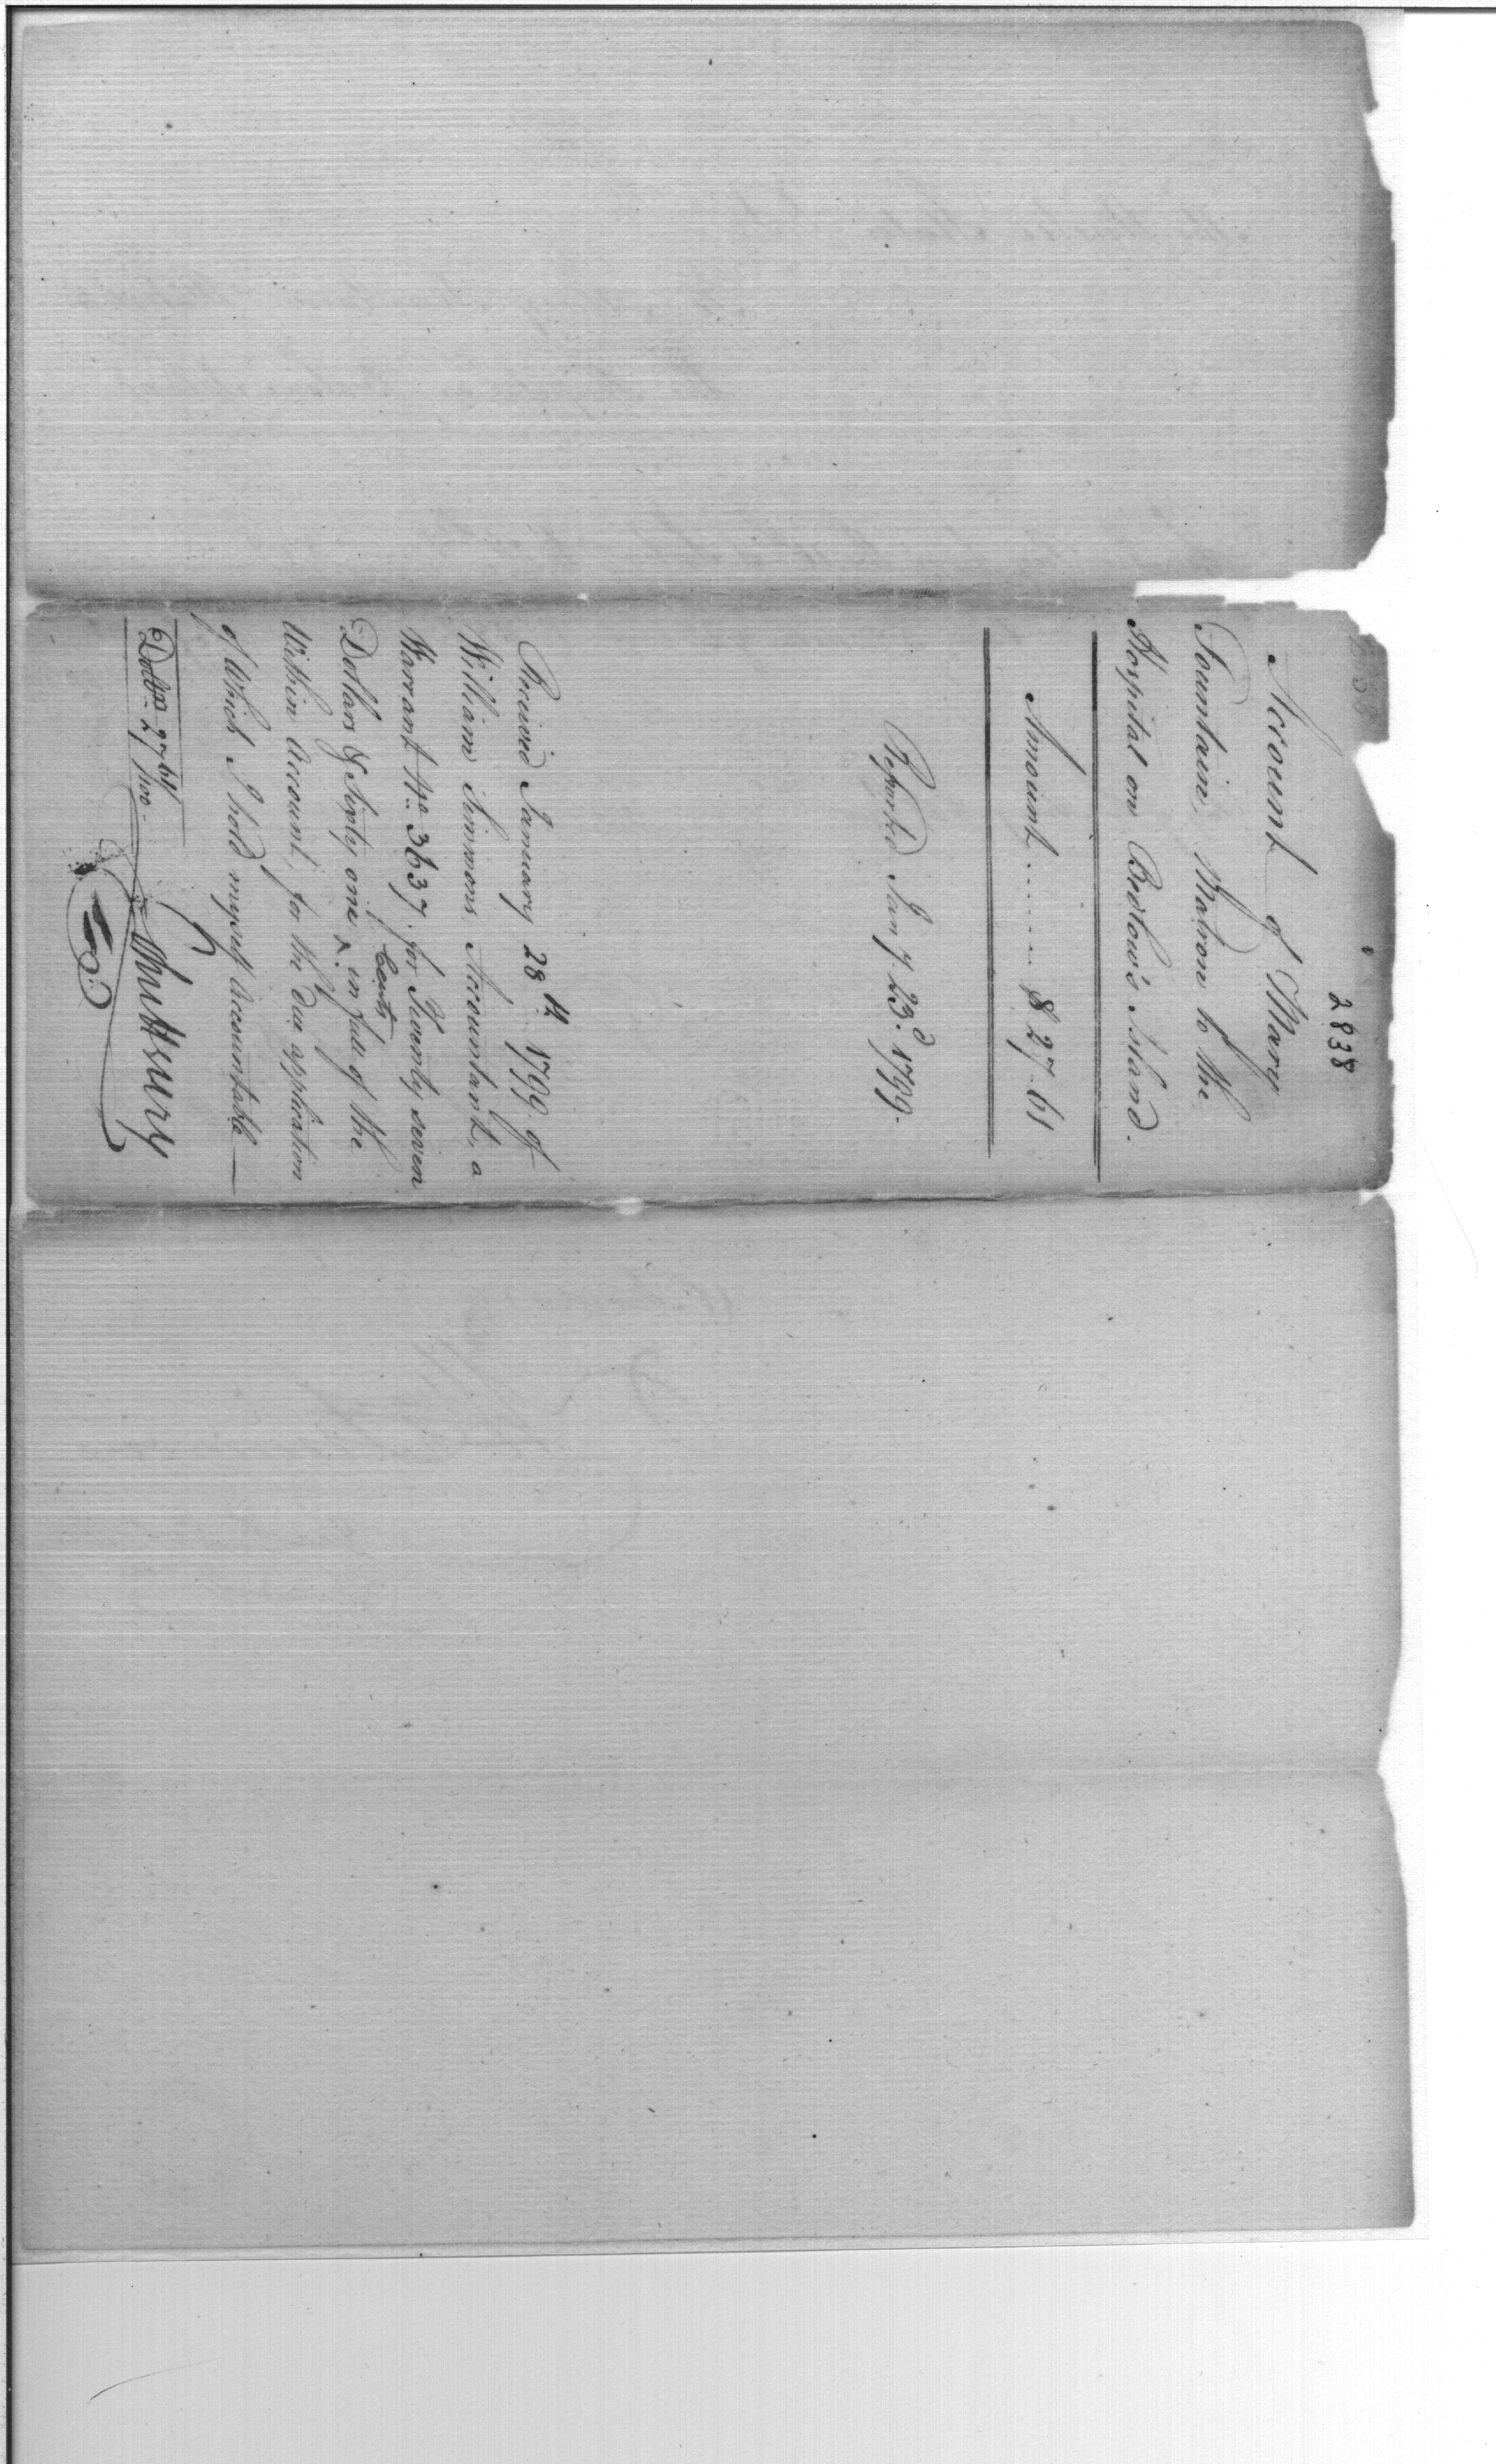 2838
Account of Mary
Fountain, Matron to the
Hospital on Bedlow's Island.
Amount ...... $ 27.61
Reported Jany. 23d. 1799.
Received January 28th 1799 of
William Simmons Accountant, a
Warrant No 3637. for Twenty seven
Dollars & Sixty one Cents in full of the
Within Account, for the due application
of Which I hold myself Accountable
Dollrs 27 61/100.